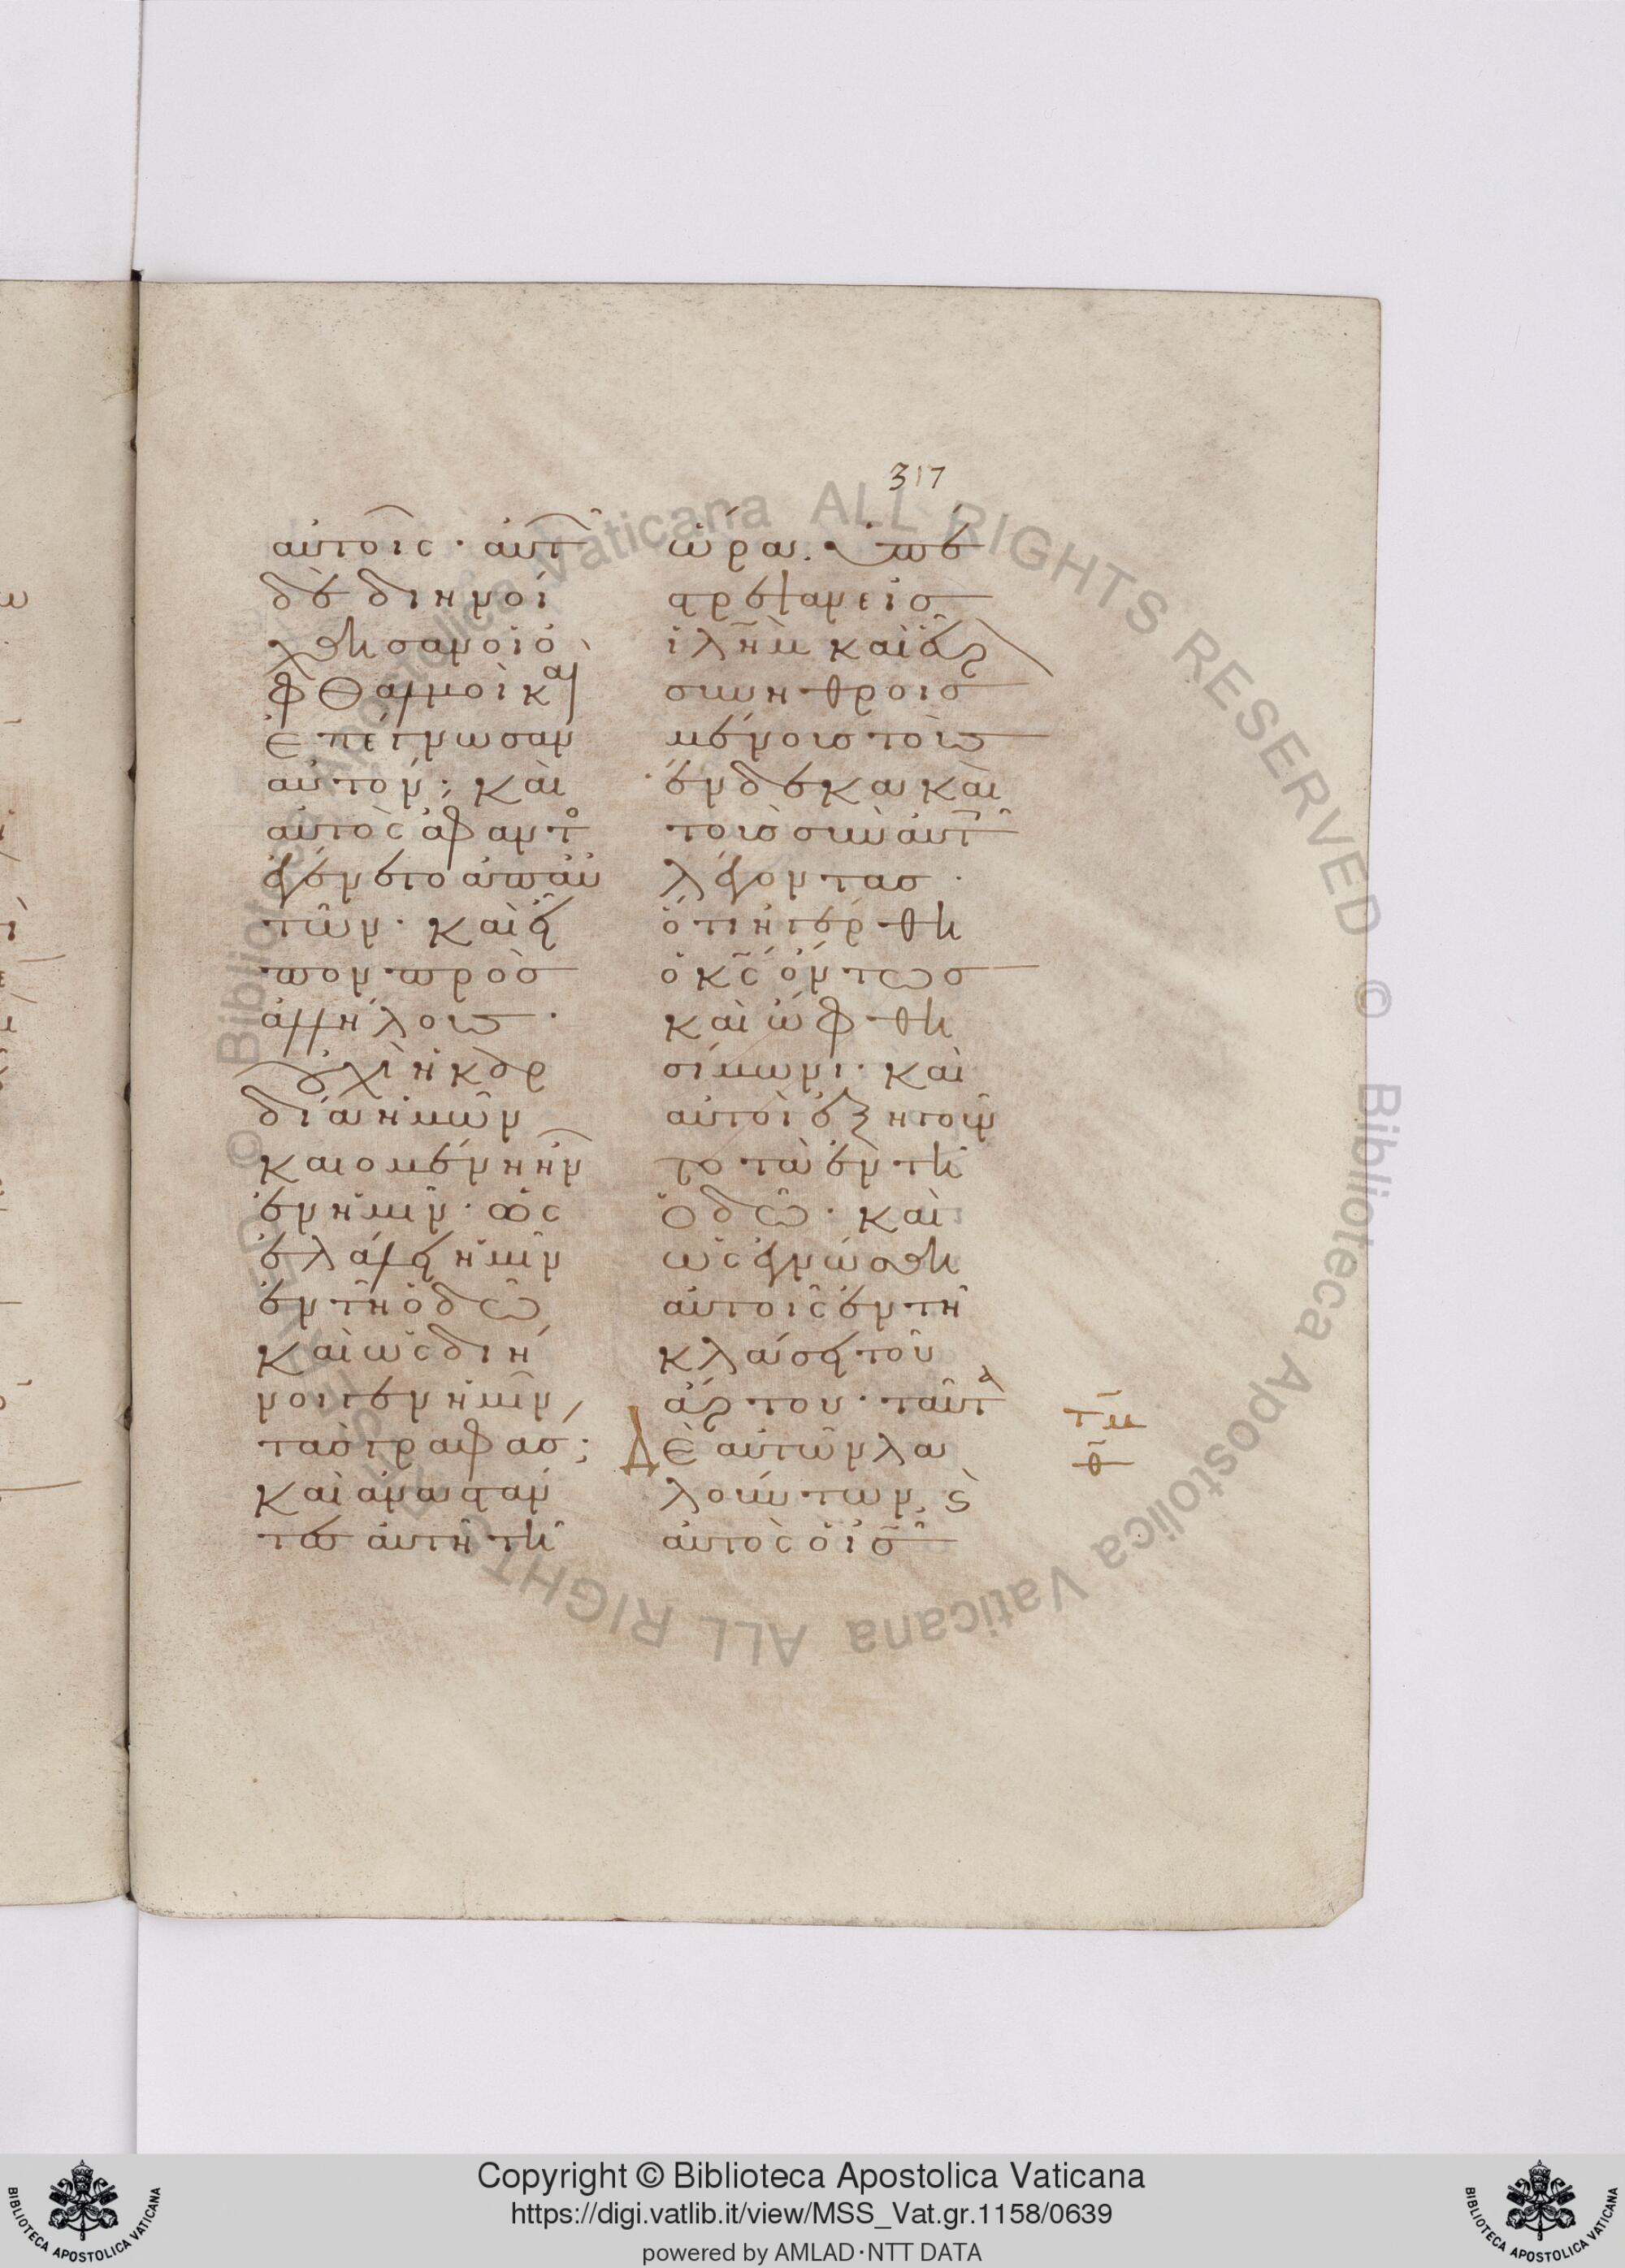 317
αὐτοῖς · αὐτ
δὲ διηνοί
χθησαν οἱ ὀ
φθαλμοὶ καὶ
ἐπέγνωσαν
αὐτόν· καὶ
αὐτὸς ἄφαντο
ἐγένετο ἀπ' αὐ
τῶν· καὶ εἶ
πον πρὸς
ἀλλήλους ·
οὐχὶ ἡ καρ
δία ἡμῶν
καιομένη ἦν
ἐν ἡμῖν · ὡς
ἐλάλει ἡμῖν
ἐν τῆ ὁδῶ
καὶ ὡς διή
νοιγεν ἡμῖν
τὰς γραφάς;
καὶ ἀναστάν
τες αὐτῆ τῆ
ὥρα. ὑπέ
στρεψαν εἰς
ἱλῆμ καὶ εὗρ
συνηθροισ
μένους τοὺς
ἕνδεκα καὶ
τοὺς σὺν αὐτ
λέγοντας ·
ὅτι ἠγέρθη
ὁ κς ὄντως
καὶ ὤφθη
σίμωνι · καὶ
αὐτοὶ ἐξηγοῦν
το τὰ ἐν τῆ
ὁδῶ · καὶ
ὡς ἐγνώσθη
αὐτοῖς ἐν τῆ
κλάσει τοῦ
ἄρτου · ταῦτα
Δὲ αὐτῶν λα
λούντων,
αὐτὸς ὁ ις
Copyright © Biblioteca Apostolica Vaticana
https://digi.vatlib.it/view/MSS_Vat.gr.1158/0639
powered by AMLAD·NTT DATA
BIBLIOTECA APOSTOLICA VATICANA
BIBLIOTECA APOSTOLICA VATICANA
© Biblioteca Apostolica Vaticana ALL RIGHTS RESERVED © Biblioteca Apostolica Vaticana ALL RIGHTS RESERVED